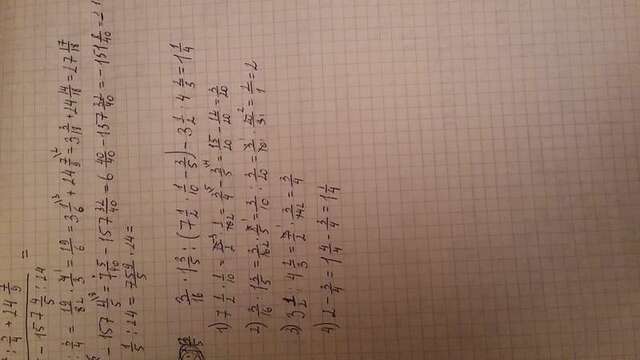 : 3/4 + 24 7/9 =
- 157 4/5 : 24
: 3/4 = 19/82 · 4/3 = 19/6 = 3 1/6 + 24 7/9 = 3 3/18 + 24 14/18 = 27 17/18
- 157 4/5 = 7 5/40 - 157 32/40 = 6 40/40 - 157 32/40 = - 151 8/40 =
1/5 : 24 = 759/5 · 24 =
3/16 · 1 3/5 : (7 1/2 · 1/10 - 3/5) - 3 1/2 : 4 2/3 = 1 1/4
1) 7 1/2 · 1/10 = 15/2 · 1/10 2 = 3/4 - 3/5 = 15/20 - 12/20 = 3/20
2) 3/16 · 1 3/5 = 3/16 2 · 8/5 = 3/10 : 3/20 = 3/10 · 20/3 = 2/1 = 2
3) 3 1/2 : 4 2/3 = 7/2 · 3/14 2 = 3/4
4) 2 - 3/4 = 1 4/4 - 3/4 = 1 1/4